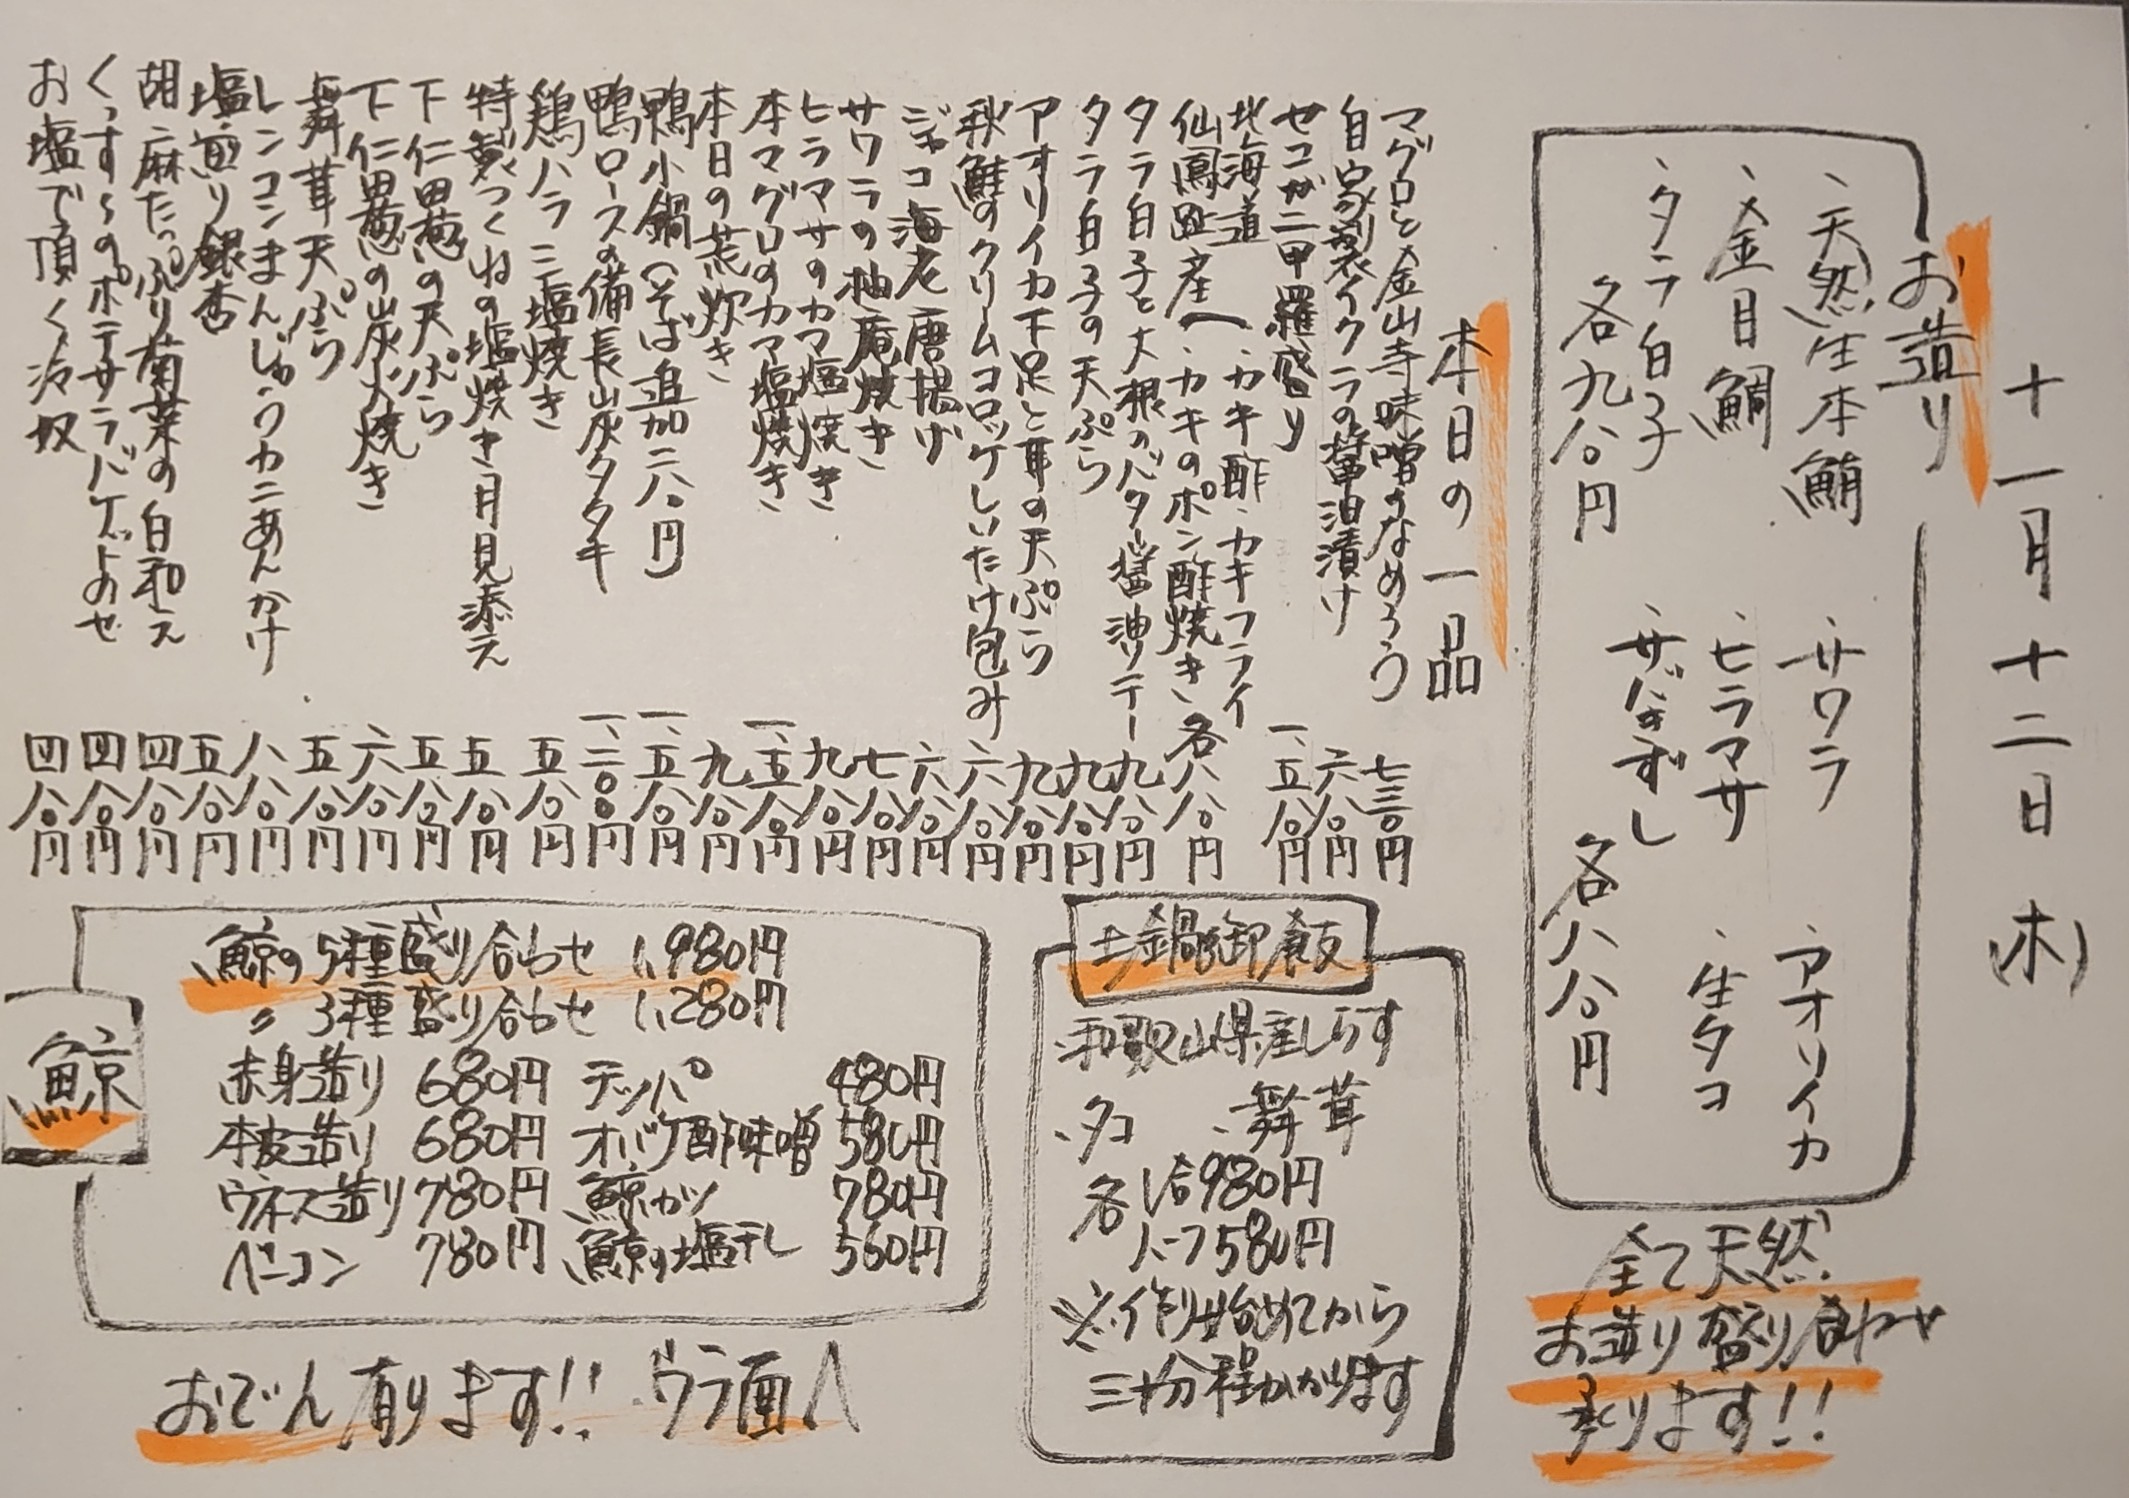 十一月十二日(木)
お造り
、天然生本鮪
、サワラ
、アオリイカ
、金目鯛
、ヒラマサ
、生タコ
、タラ白子
、サバきずし
各九八〇円
各八八〇円
全て天然
お造り盛り合わせ
承ります!!
本日の一品
マグロと金山寺味噌のなめろう 七三〇円
自家製イクラの醤油漬け 六八〇円
セコガニ甲羅盛り 一、五八〇円
北海道 、カキ酢、カキフライ
仙鳳趾産へ、カキのポン酢焼き 各八八〇円
タラ白子と大根のバター醤油ソテー 九八〇円
タラ白子の天ぷら 九八〇円
アオリイカ下足と耳の天ぷら 九八〇円
秋鮭のクリームコロッケしいたけ包み 六八〇円
ジャコ海老唐揚げ 六八〇円
サワラの柚庵焼き 七八〇円
ヒラマサのカマ塩焼き 九八〇円
本マグロのカマ塩焼き 一、五八〇円
本日の荒炊き 九八〇円
鴨小鍋(そば追加二八〇円 一、五八〇円
鴨ロースの備長炭タタキ 一、二〇〇円
鶏ハラミ塩焼き 五八〇円
特製つくねの塩焼き月見添え 五八〇円
下仁田葱の天ぷら 五八〇円
下仁田葱の炭火焼き 六八〇円
舞茸天ぷら 五八〇円
レンコンまんじゅうカニあんかけ 八八〇円
塩煎り銀杏 五八〇円
胡麻たっぷり菊菜の白和え 四八〇円
くっすーのポテサラバゲットのせ 四八〇円
お塩で頂く冷奴 四八〇円
土鍋御飯
、和歌山県産しらす
、タコ 、舞茸
各 1合980円
ハーフ580円
※作り始めてから
三十分程かかります
鯨
鯨の5種盛り合わせ 1,980円
〃 3種盛り合わせ 1,280円
赤身造り 680円 テッパ 480円
本皮造り 680円 オバケ酢味噌 580円
ウネス造り 780円 鯨カツ 780円
ベーコン 780円 鯨の塩干し 560円
おでん有ります!! ウラ面へ